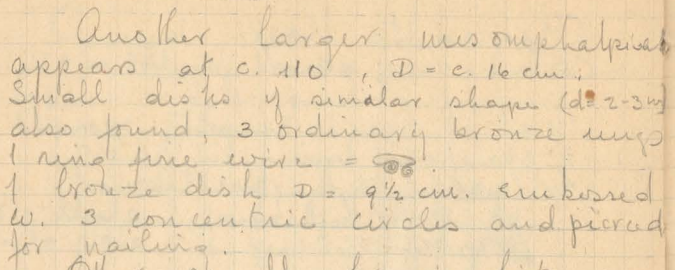 Another larger mesomphalpinak
appears at c. 110, D = c. 16 cm;
Small disks of similar shape (d = 2-3 m)
also found, 3 ordinary bronze rings
1 ring fine wire =
1 bronze disk D = 9 1/2 cm. embossed
w. 3 concentric circles and pierced
for nailing.